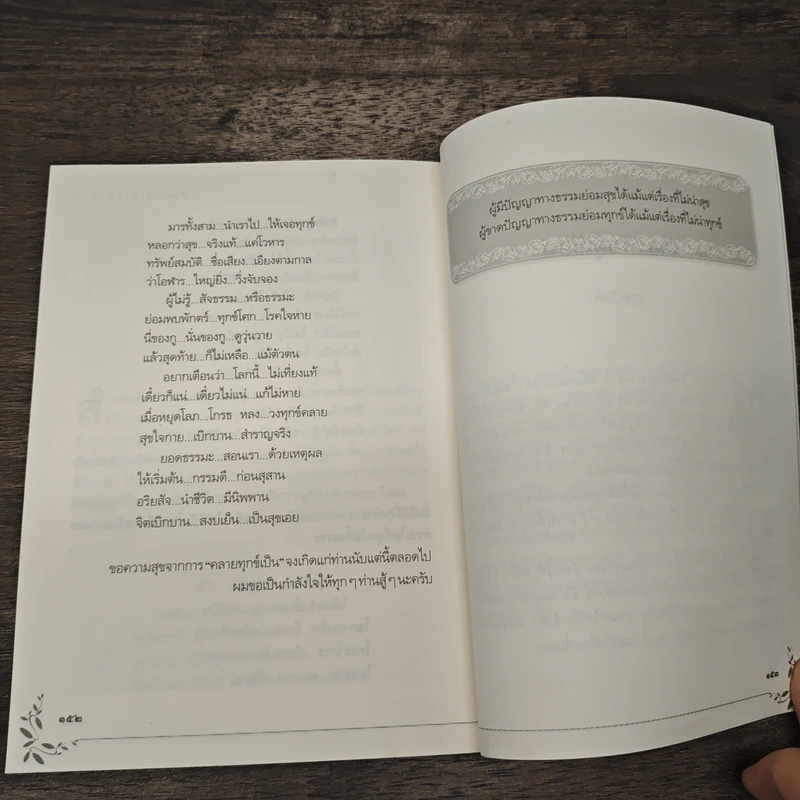 มารทั้งสาม...นำเราไป...ให้เจอทุกข์
หลอกว่าสุข...จริงแท้...แค่โวหาร
ทรัพย์สมบัติ...ชื่อเสียง...เอียงตามกาล
ว่าโอฬาร...ใหญ่ยิ่ง...วิ่งจับจอง
ผู้ไม่รู้...สัจธรรม...หรือธรรมะ
ย่อมพบพักตร์...ทุกข์โศก...โรคใจหาย
นี่ของกู...นั่นของกู...ดูวุ่นวาย
แล้วสุดท้าย...ก็ไม่เหลือ...แม้ตัวตน
อยากเตือนว่า...โลกนี้...ไม่เที่ยงแท้
เดี๋ยวก็แน่...เดี๋ยวไม่แน่...แก้ไม่หาย
เมื่อหยุดโลภ...โกรธ หลง...วงทุกข์คลาย
สุขใจกาย...เบิกบาน...สำราญจริง
ยอดธรรมะ...สอนเรา...ด้วยเหตุผล
ให้เริ่มต้น...กรรมดี...ก่อนสุสาน
อริยสัจ...นำชีวิต...มีนิพพาน
จิตเบิกบาน...สงบเย็น...เป็นสุขเอย
ขอความสุขจากการ "คลายทุกข์เป็น" จงเกิดแก่ท่านนับแต่นี้ตลอดไป
ผมขอเป็นกำลังใจให้ทุกๆ ท่านสู้ๆ นะครับ
๑๕๒
ผู้มีปัญญาทางธรรมย่อมสุขได้แม้แต่เรื่องที่ไม่น่าสุข
ผู้ขาดปัญญาทางธรรมย่อมทุกข์ได้แม้แต่เรื่องที่ไม่น่าทุกข์